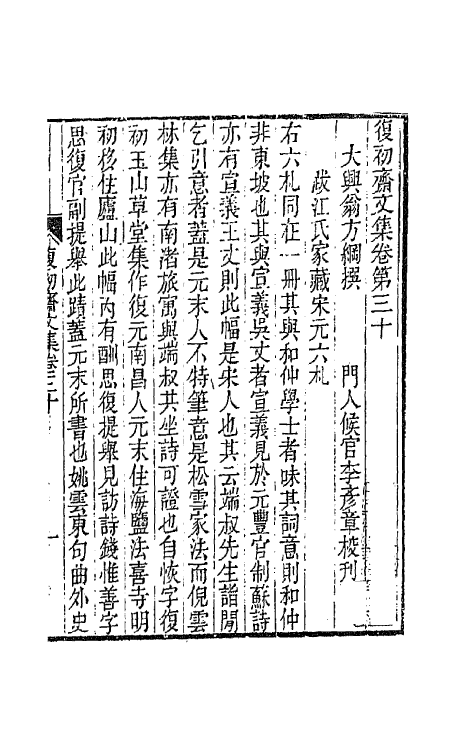 復初齋文集卷第三十
大興翁方綱撰　門人候官李彥章校刊
跋江氏家藏宋元六札
右六札同在一冊其與和仲學士者味其詞意則和仲
非東坡也其與宣義吳丈者宣義見於元豐官制蘇詩
亦有宣義王丈則此幅是宋人也其云端叔先生詣閒
乞引意者蓋是元末人不特筆意是松雪家法而倪雲
林集亦有南渚旅寓與端叔共坐詩可證也自恢字復
初玉山草堂集作復元南昌人元末住海鹽法喜寺明
初移住廬山此幅內有酬思復提舉見訪詩錢惟善字
思復官副提舉此蹟蓋元末所書也姚雲東句曲外史
復初齋文集卷三十
一